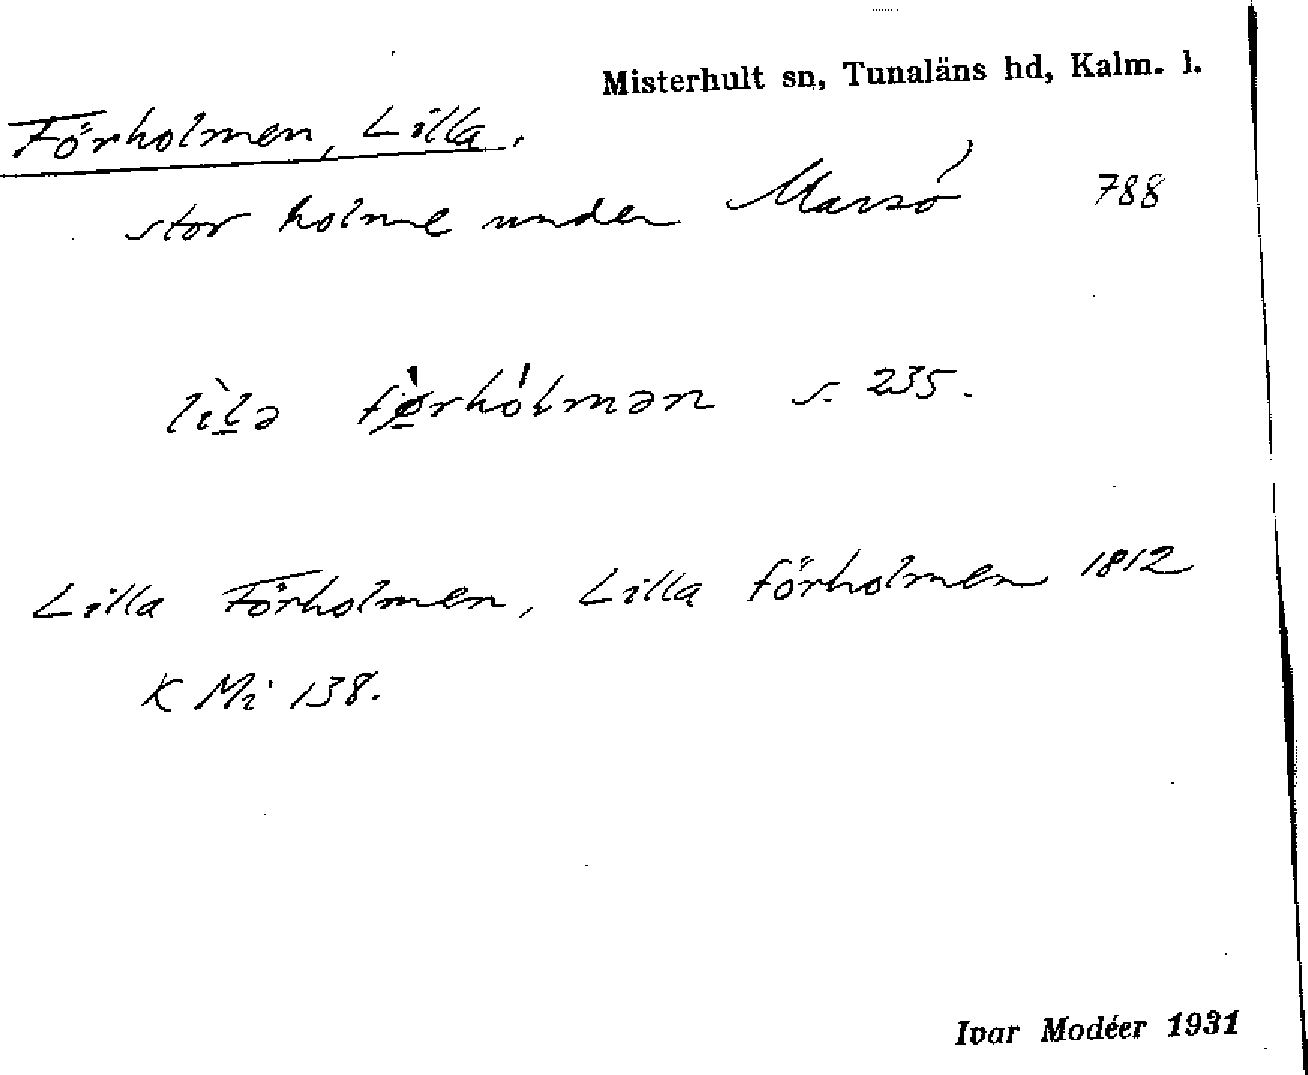 Misterhult sn, Tunaläns hd, Kalm. l.
Förholmen, Lilla.
stor holme under Marsö 788
lìla fø̀rhólmən s. 235.
Lilla Förholmen, Lilla förholmen 1812
K Mi 138.
Ivar Modéer 1931